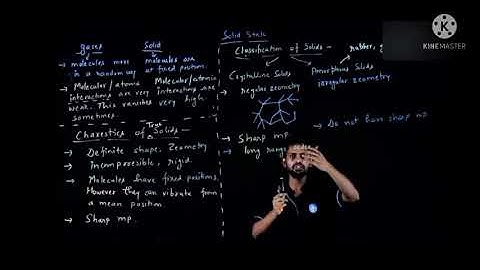 gases Solid
→ molecules move molecules are
in a random way at fixed position.
→ Molecular/atomic Molecular/atomic
interactions are very interactions are
weak. This vanishes very high.
sometimes
Charestics of True Solids:-
→ Definite shape, Zeometry
→ incompressible, rigid.
→ Molecules have fixed positions.
However they can vibrate from
a mean position
→ Sharp mp.
Solid State
Classification of Solids → rubber,
Crystalline Solids
regular zeometry
Amorphous Solids
irregular zeometry.
→ Sharp mp
→ long range order
→ Do not have sharp mp
K
KINEMASTER